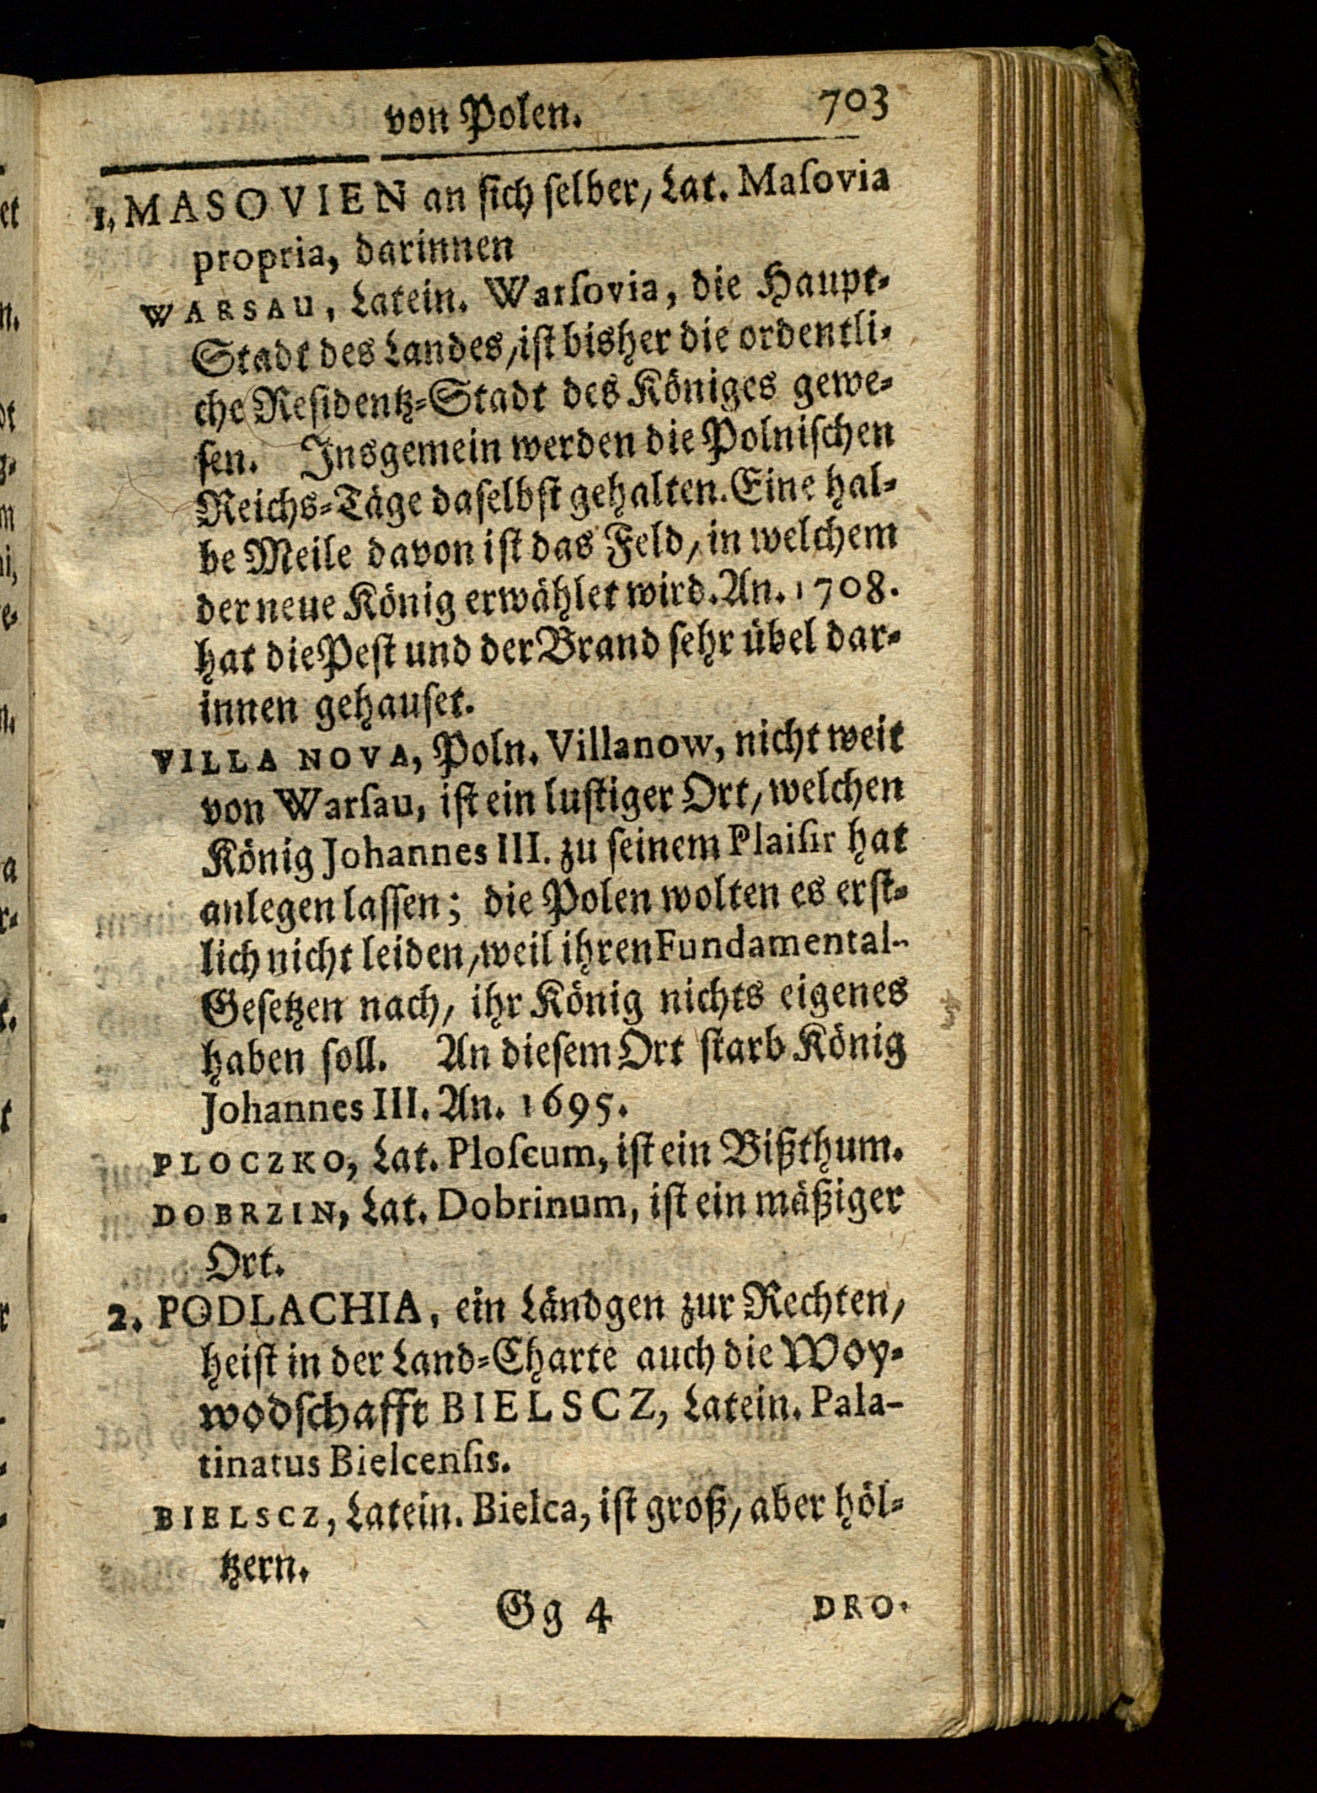 von Polen. 703
1. MASOVIEN an sich selber, Lat. Masovia
propria, darinnen
WARSAU, Latein. Warsovia, die Haupt-
Stadt des Landes, ist bisher die ordentli-
che Residentz-Stadt des Königes gewe-
sen. Insgemein werden die Polnischen
Reichs-Täge daselbst gehalten. Eine hal-
be Meile davon ist das Feld, in welchem
der neue König erwählet wird. An. 1708.
hat die Pest und der Brand sehr übel dar-
innen gehauset.
VILLA NOVA, Poln. Villanow, nicht weit
von Warsau, ist ein lustiger Ort, welchen
König Johannes III. zu seinem Plaisir hat
anlegen lassen; die Polen wolten es erst-
lich nicht leiden, weil ihren Fundamental-
Gesetzen nach, ihr König nichts eigenes
haben soll. An diesem Ort starb König
Johannes III. An. 1695.
PLOCZKO, Lat. Ploscum, ist ein Bißthum.
DOBRZIN, Lat. Dobrinum, ist ein mäßiger
Ort.
2. PODLACHIA, ein Ländgen zur Rechten,
heist in der Land-Charte auch die Woy-
wodschafft BIELSCZ, Latein. Pala-
tinatus Bielcensis.
BIELSCZ, Latein. Bielca, ist groß, aber höl-
tzern.
Gg 4 DRO-